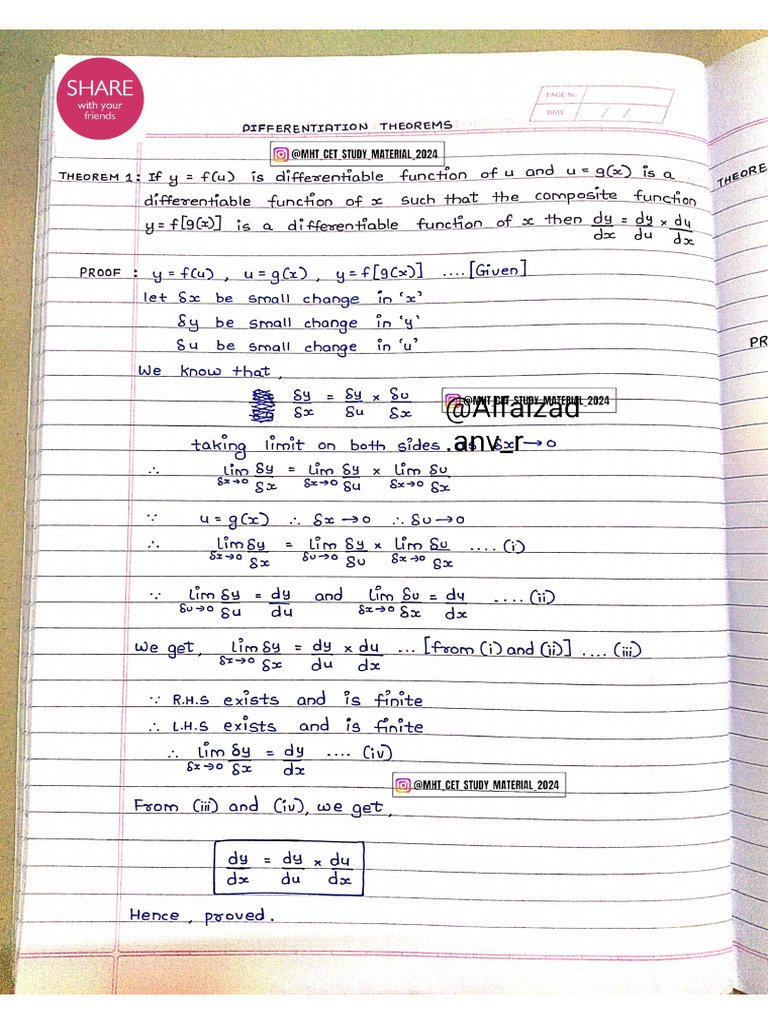 SHARE
with your
friends
PAGE No.
DATE / /
DIFFERENTIATION THEOREMS
@MHT_CET_STUDY_MATERIAL_2024
THEOREM 1: If y = f(u) is differentiable function of u and u = g(x) is a
differentiable function of x such that the composite function
y = f[g(x)] is a differentiable function of x then dy/dx = dy/du × du/dx
THEORE
PROOF : y = f(u) , u = g(x) , y = f[g(x)] ....[Given]
let δx be small change in 'x'
δy be small change in 'y'
δu be small change in 'u'
PR
We know that,
δy/δx = δy/δu × δu/δx
@MHT_CET_STUDY_MATERIAL_2024
@Alfaizad
.anv_r
taking limit on both sides δx → 0
∴ lim δx→0 δy/δx = lim δx→0 δy/δu × lim δx→0 δu/δx
∵ u = g(x) ∴ δx → 0 ∴ δu → 0
∴ lim δx→0 δy/δx = lim δu→0 δy/δu × lim δx→0 δu/δx ....(i)
∵ lim δu→0 δy/δu = dy/du and lim δx→0 δu/δx = du/dx ....(ii)
We get, lim δx→0 δy/δx = dy/du × du/dx ...[from (i) and (ii)] ....(iii)
∵ R.H.S exists and is finite
∴ L.H.S exists and is finite
∴ lim δx→0 δy/δx = dy/dx ....(iv)
@MHT_CET_STUDY_MATERIAL_2024
From (iii) and (iv), we get,
dy/dx = dy/du × du/dx
Hence, proved.